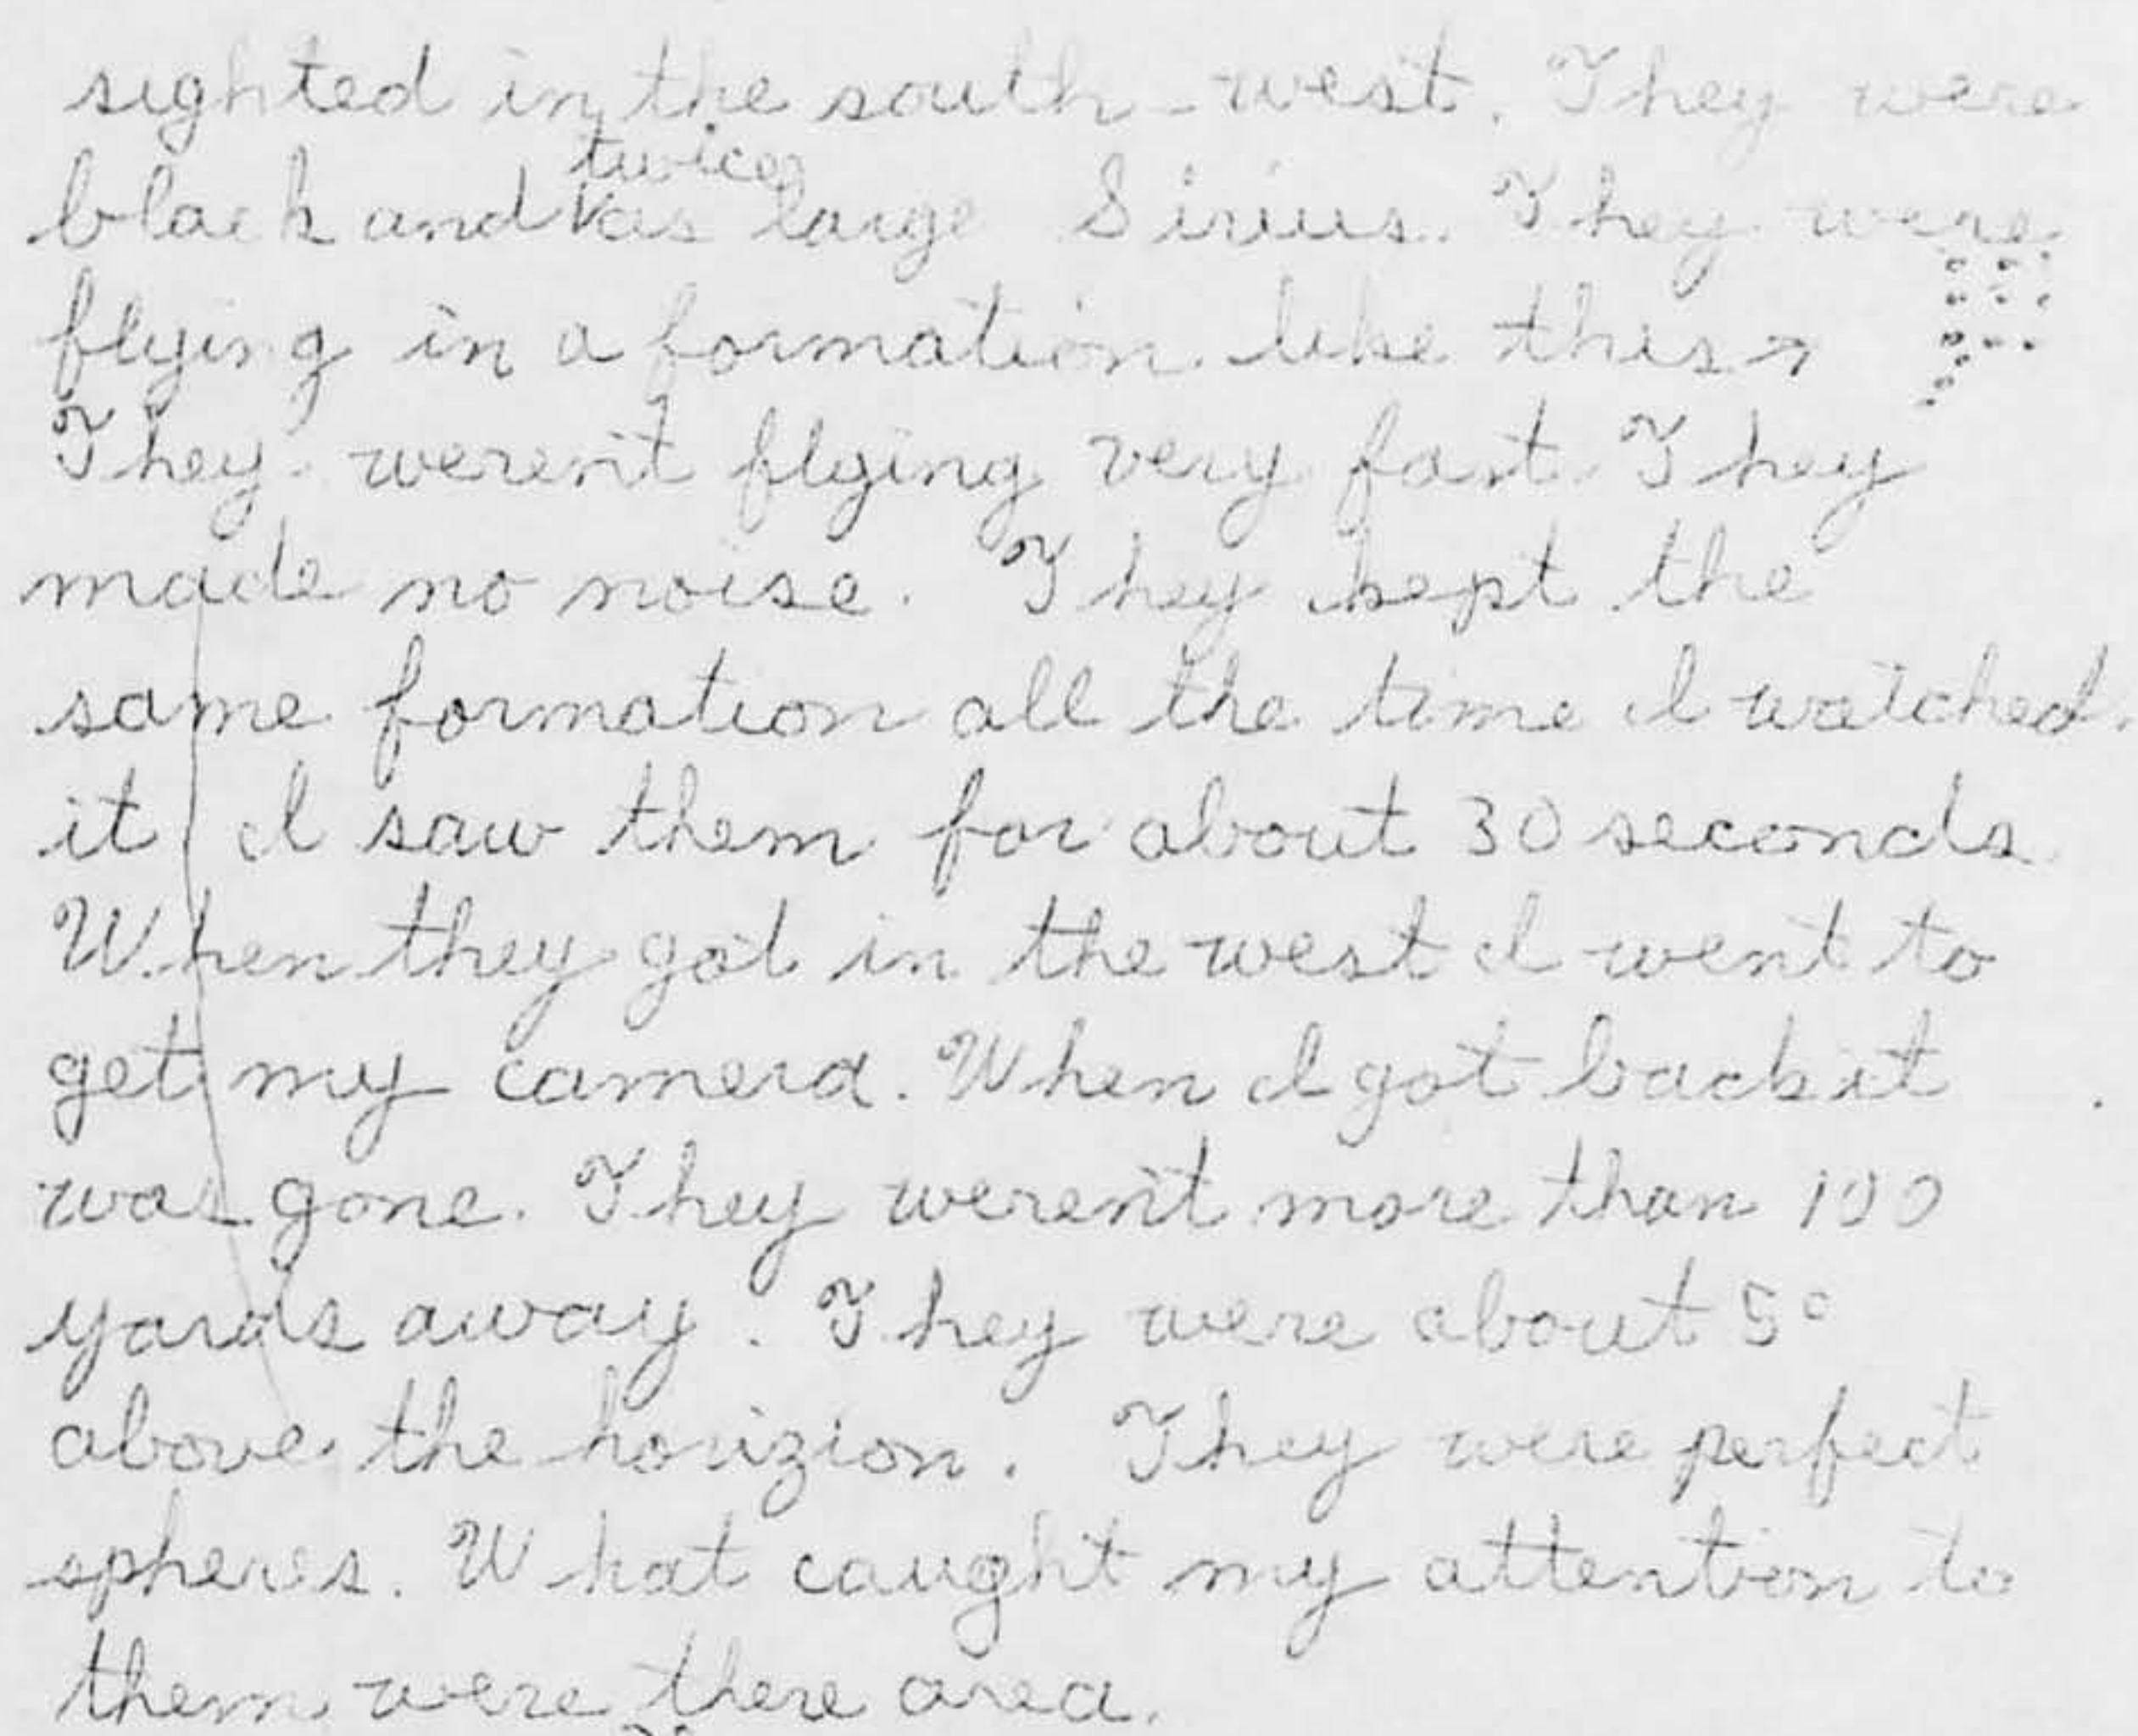 sighted in the south-west. They were
twice
black and as large Sirius. They were
flying in a formation like this →
They weren't flying very fast They
made no noise. They kept the
same formation all the time I watched
it I saw them for about 30 seconds
When they got in the west I went to
get my camera. When I got back it
was gone. They weren't more than 100
yards away. They were about 5°
above the horizion. They were perfect
spheres. What caught my attention to
them were there area.